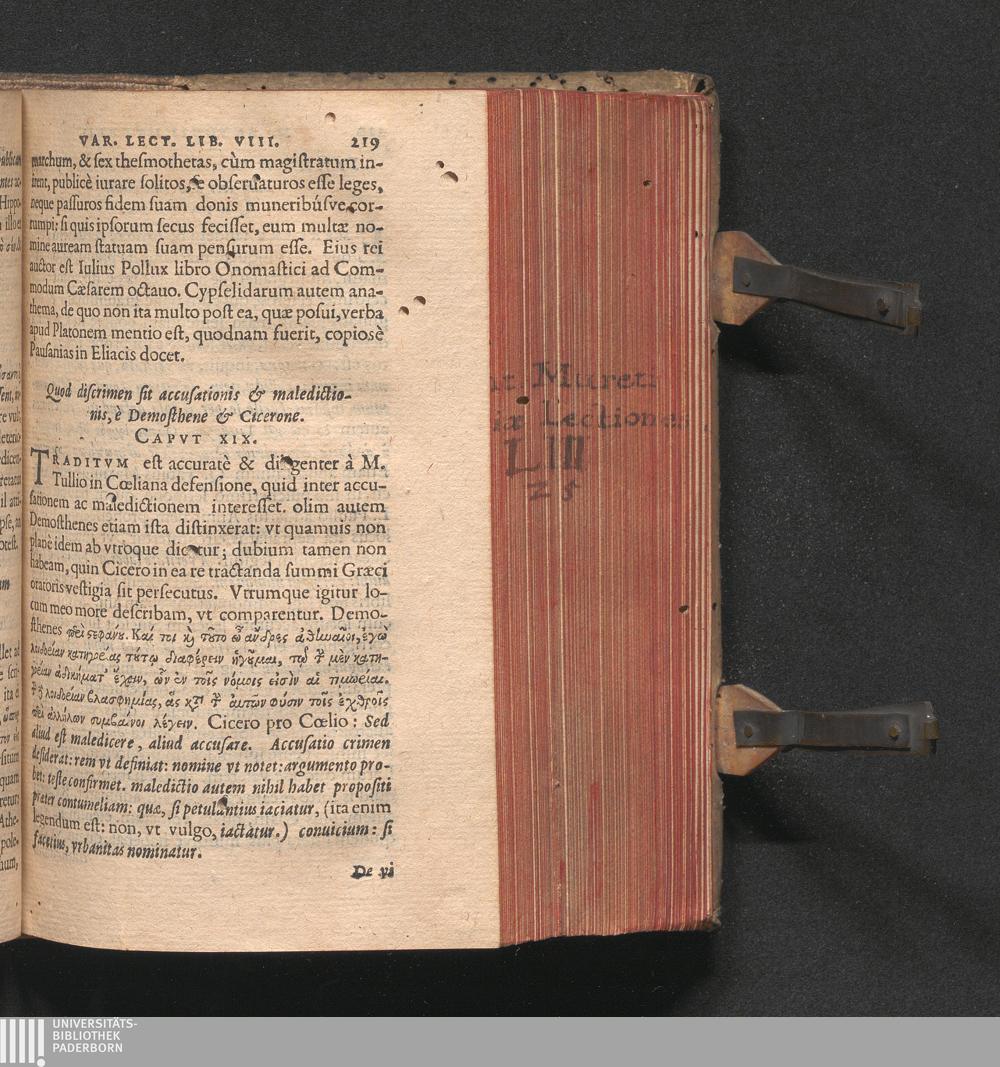 VAR. LECT. LIB. VIII. 219
marchum, & ſex theſmothetas, cùm magiſtratum in-
irent, publicè iurare ſolitos, ſe obſeruaturos eſſe leges,
neque paſſuros fidem ſuam donis muneribúſve cor-
rumpi: ſi quis ipſorum ſecus feciſſet, eum multæ no-
mine auream ſtatuam ſuam penſurum eſſe. Eius rei
auctor eſt Iulius Pollux libro Onomaſtici ad Com-
modum Cæſarem octauo. Cypſelidarum autem ana-
thema, de quo non ita multo poſt ea, quæ poſui, verba
apud Platonem mentio eſt, quodnam fuerit, copiosè
Pauſanias in Eliacis docet.
Quod diſcrimen ſit accuſationis & maledictio-
nis, è Demoſthene & Cicerone.
CAPVT XIX.
TRADITVM eſt accuratè & diligenter à M.
Tullio in Cœliana defenſione, quid inter accu-
ſationem ac maledictionem intereſſet. olim autem
Demoſthenes etiam iſta diſtinxerat: vt quamuis non
planè idem ab vtroque dicatur; dubium tamen non
habeam, quin Cicero in ea re tractanda ſummi Græci
oratoris veſtigia ſit perſecutus. Vtrumque igitur lo-
cum meo more deſcribam, vt comparentur. Demo-
ſthenes περὶ ςεφάνου. Καί τοι καὶ τοῦτο ὦ ἄνδρες ἀθηναῖοι, ἐγὼ
λοιδορίαν κατηγορίας τούτῳ διαφέρειν ἡγοῦμαι, τῷ τὴν μὲν κατη-
γορίαν ἀδικήματ' ἔχειν, ὧν ἐν τοῖς νόμοις εἰσὶν αἱ τιμωρίαι.
τὴν δὲ λοιδορίαν βλασφημίας, ἃς κατὰ τὴν αὐτῶν φύσιν τοῖς ἐχθροῖς
περὶ ἀλλήλων συμβαίνοι λέγειν. Cicero pro Cœlio: Sed
aliud eſt maledicere, aliud accuſare. Accuſatio crimen
deſiderat: rem vt definiat: nomine vt notet: argumento pro-
bet: teſte confirmet. maledictio autem nihil habet propoſiti
præter contumeliam: quæ, ſi petulantius iaciatur, (ita enim
legendum eſt: non, vt vulgo, iactatur.) conuicium: ſi
facetius, vrbanitas nominatur.
De vi
Mureti
Lectiones
LIII
25
UNIVERSITÄTS-
BIBLIOTHEK
PADERBORN